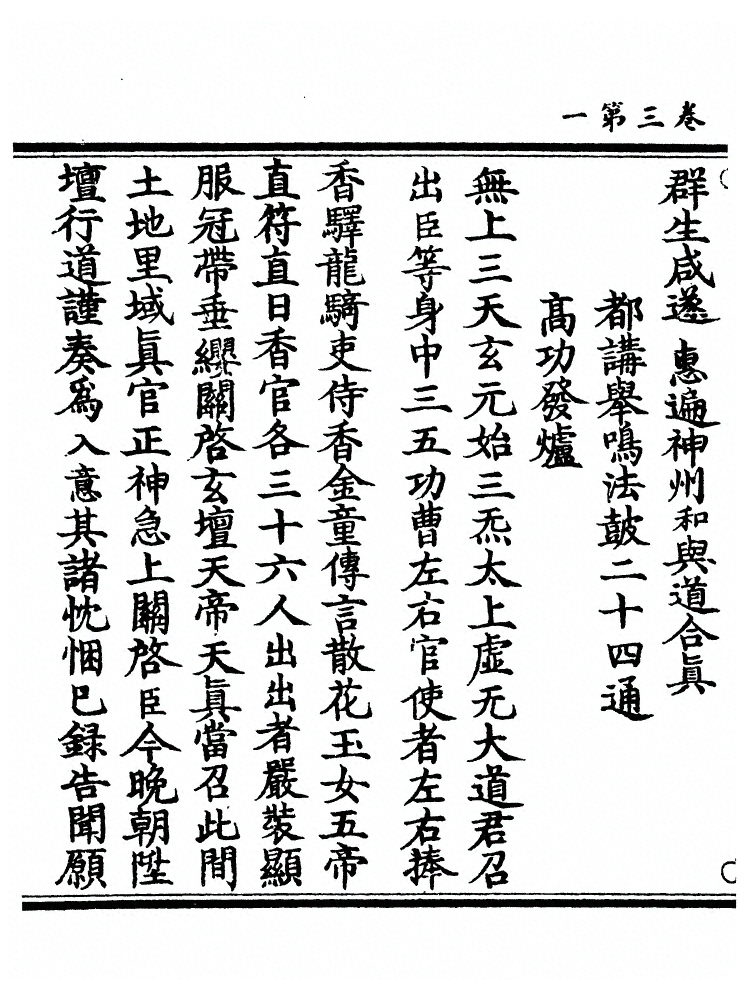 一第三卷
群生咸遂惠遍神州和與道合眞
都講舉鳴法鼓二十四通
高功發爐
無上三天玄元始三炁太上虛无大道君召
出臣等身中三五功曹左右官使者左右捧
香驛龍騎吏侍香金童傳言散花玉女五帝
直符直日香官各三十六人出出者嚴裝顯
服冠帶垂纓關啓玄壇天帝天眞當召此間
土地里域眞官正神急上關啓臣今晚朝陞
壇行道謹奏爲入意其諸忱悃已録告聞願